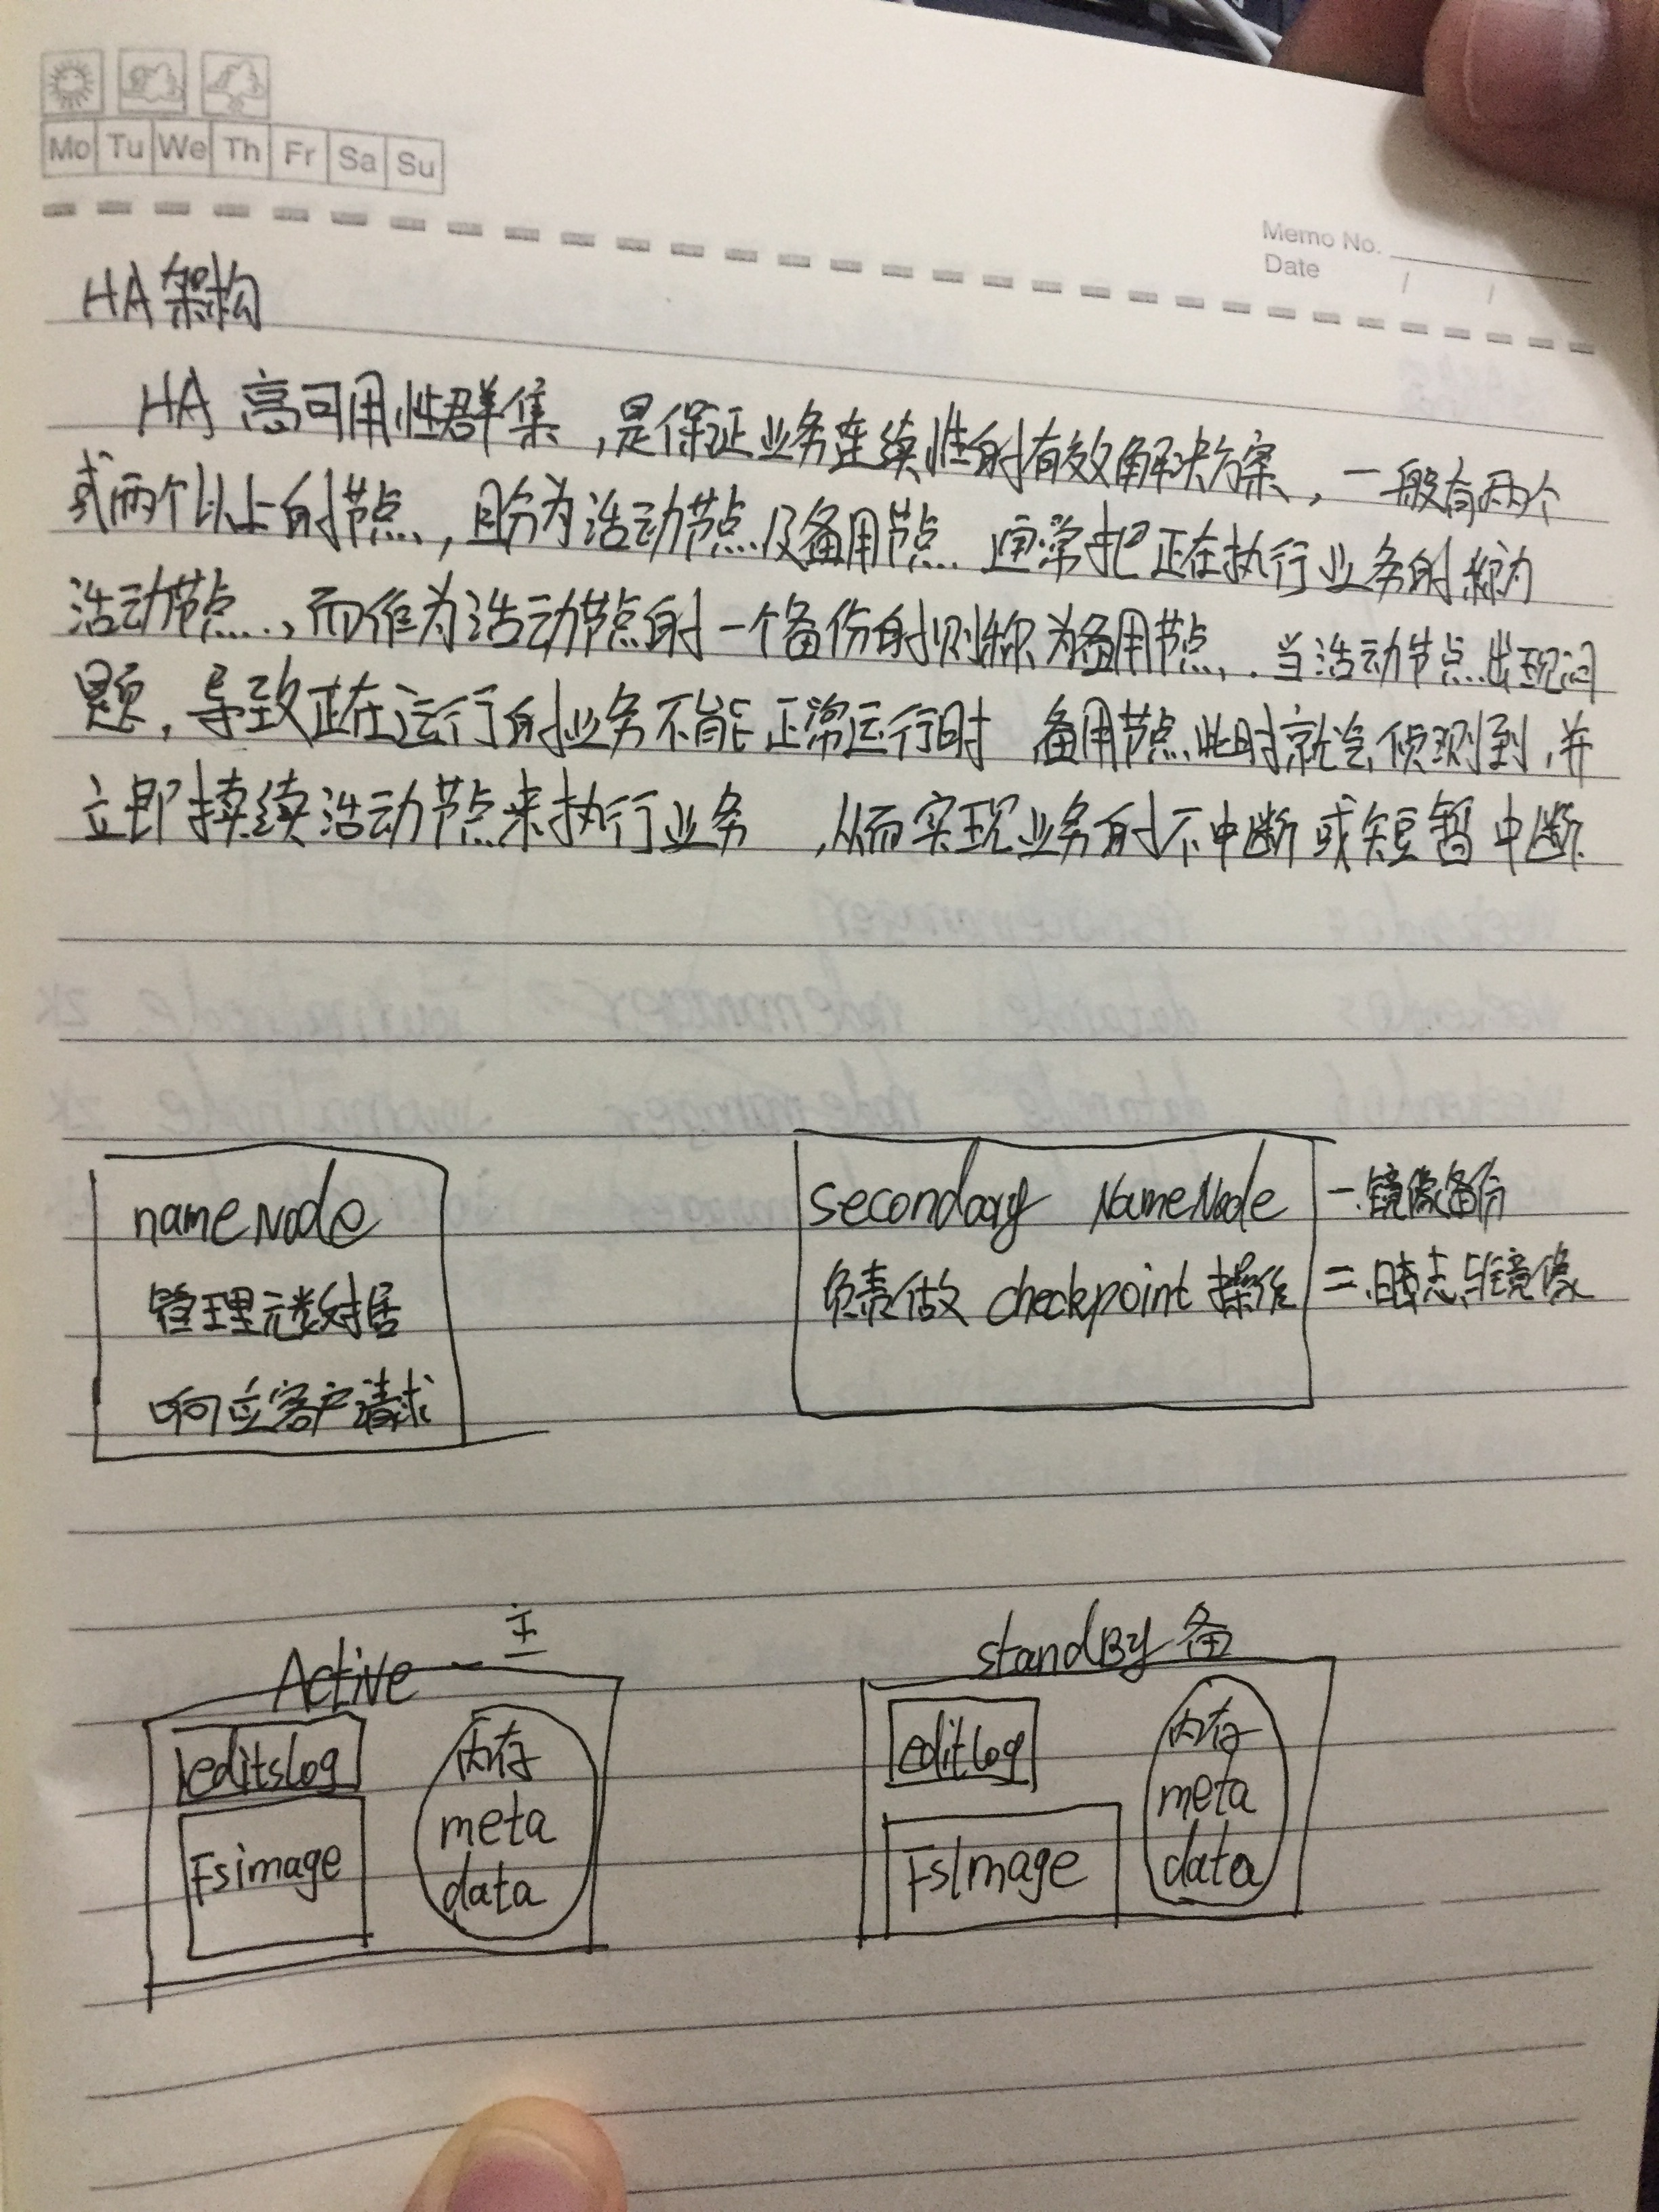 Mo Tu We Th Fr Sa Su
Memo No.
Date / /
HA架构
HA 高可用性群集,是保证业务连续性的有效解决方案,一般有两个
或两个以上的节点,且分为活动节点及备用节点.通常把正在执行业务的称为
活动节点,而作为活动节点的一个备份的则称为备用节点.当活动节点出现问
题,导致正在运行的业务不能正常运行时 备用节点此时就会侦测到,并
立即接续活动节点来执行业务,从而实现业务的不中断或短暂中断
nameNode
管理元数据
响应客户请求
secondary NameNode
负责做checkpoint操作
一.镜像备份
二.日志与镜像
Active 主
editslog
Fsimage
内存
meta
data
standBy 备
editLog
FsImage
内存
meta
data